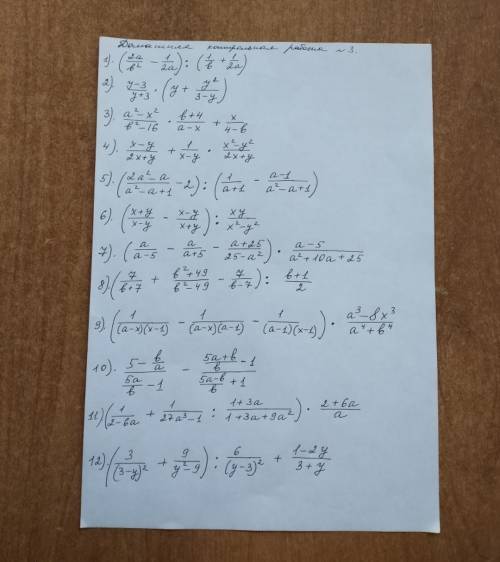 Домашняя контрольная работа ~3.
1). (2a/b² − 1/2a) : (1/b + 1/2a)
2). y−3/y+3 · (y + y²/3−y)
3). a²−x²/b²−16 · b+4/a−x + x/4−b
4). x−y/2x+y + 1/x−y · x²−y²/2x+y
5). (2a²−a/a²−a+1 − 2) : (1/a+1 − a−1/a²−a+1)
6). (x+y/x−y − x−y/x+y) : xy/x²−y²
7). (a/a−5 − a/a+5 − a+25/25−a²) · a−5/a²+10a+25
8). (7/b+7 + b²+49/b²−49 − 7/b−7) : b+1/2
9). (1/(a−x)(x−1) − 1/(a−x)(a−1) − 1/(a−1)(x−1)) · a³−8x³/a⁴+b⁴
10). (5 − b/a)/(5a/b − 1) − (5a+b/b − 1)/(5a−b/b + 1)
11) (1/2−6a + 1/27a³−1 : 1+3a/1+3a+9a²) · 2+6a/a
12). (3/(3−y)² + 9/y²−9) : 6/(y−3)² + 1−2y/3+y